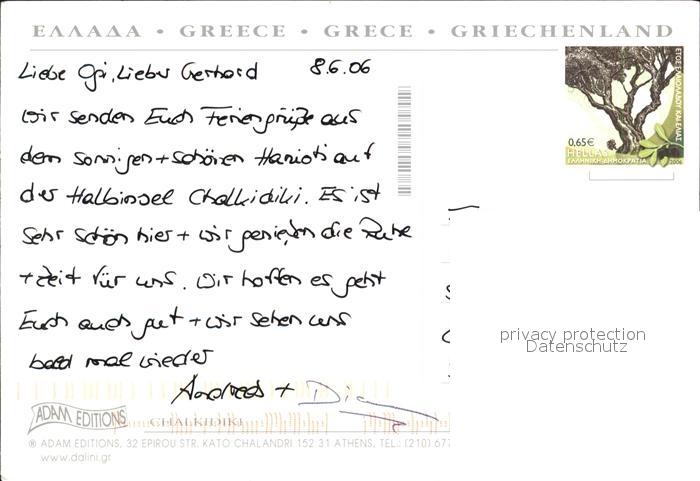 ΕΛΛΑΔΑ • GREECE • GRECE • GRIECHENLAND
Liebe Opi, Lieber Gerhard 8.6.06
wir senden Euch Feriengrüße aus
dem sonnigen + schönen Hanioti auf
der Halbinsel Chalkidiki. Es ist
sehr schön hier + wir genießen die Ruhe
+ Zeit für uns. Wir hoffen es geht
Euch auch gut + wir sehen uns
bald mal wieder
Andreas +
ΕΤΟΣ ΕΛΑΙΟΛΑΔΟΥ ΚΑΙ ΕΛΙΑΣ
0,65€
HELLAS
ΕΛΛΗΝΙΚΗ ΔΗΜΟΚΡΑΤΙΑ
privacy protection
Datenschutz
ADAM EDITIONS
CHALKIDIKI
® ADAM EDITIONS, 32 EPIROU STR. KATO CHALANDRI 152 31 ATHENS, TEL.: (210) 677
www.dalini.gr